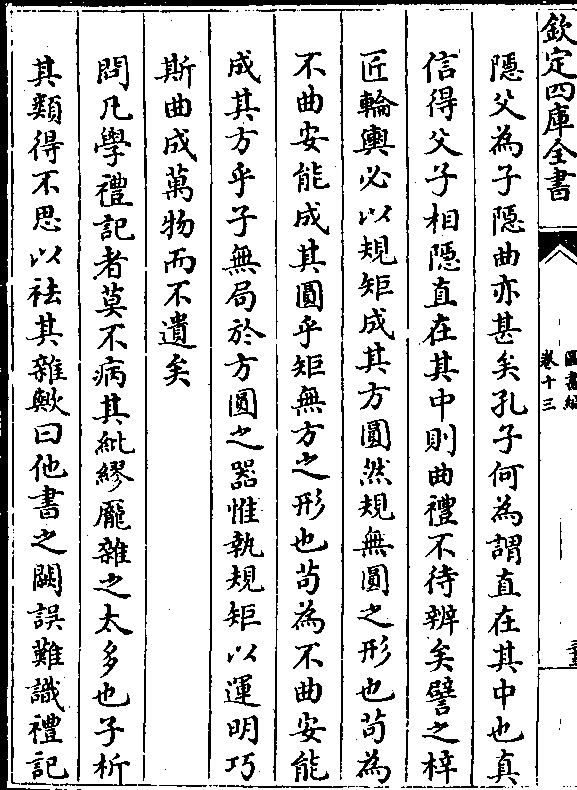 欽定四庫全書
圖書編
卷十三
隱父為子隱曲亦甚矣孔子何為謂直在其中也真
信得父子相隱直在其中則曲禮不待辨矣譬之梓
匠輪輿必以規矩成其方圓然規無圓之形也茍為
不曲安能成其圓乎矩無方之形也茍為不曲安能
成其方乎子無局於方圓之器惟執規矩以運明巧
斯曲成萬物而不遺矣
問凡學禮記者莫不病其紕繆龎雜之太多也子析
其類得不思以祛其雜歟曰他書之闕誤難識禮記